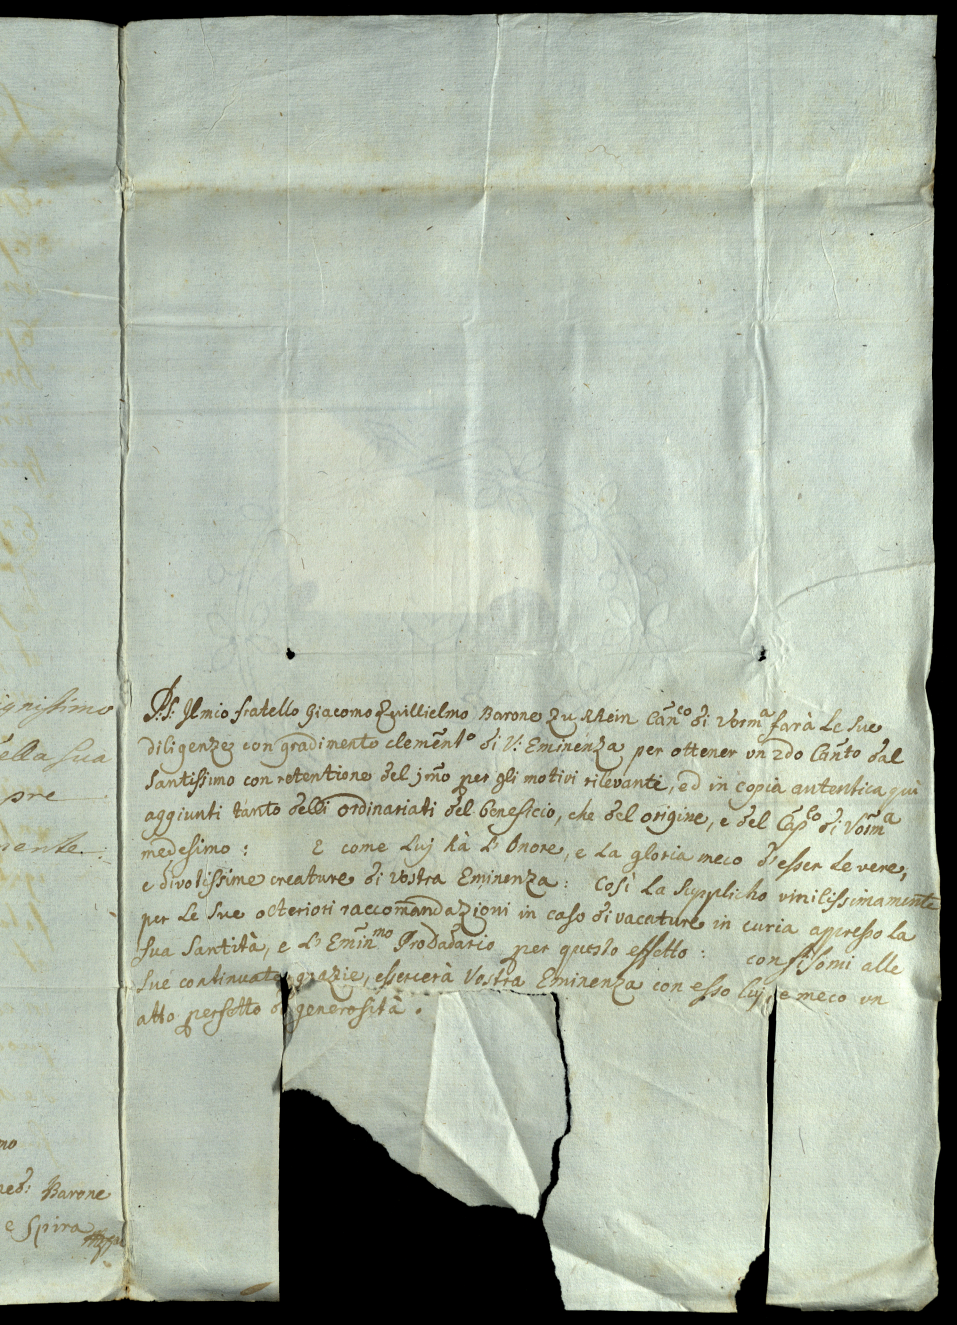 ignissimo
ella sua
pre
mente:
mo
ned: Barone
e Spira
P.S. Il mio fratello Giacomo Quillielmo Barone Zu Rhein Can:co di Vorm:a farà le sue
diligenze con gradimento clement:o di V: Eminenza per ottener un 2do Can:to dal
Santissimo con retentione del j:mo per gli motivi rilevante, ed in copia autentica quì
aggiunti tanto delli ordinariati del beneficio, che del origine, e del Cap:lo di Vorm:a
medesimo: E come Luj hà l'Onore, e la gloria meco d'esser le vere,
e divotissime creature di Vostra Eminenza: Così la supplicho vmilissimamente
per le sue olteriori raccommandazioni in caso di vacature in curia appresso la
sua Santità, e l'Emin:mo Prodadario per questo effetto: confisomi alle
sue continuate grazie, essercerà Vostra Eminenza con esso luj, e meco vn
atto perfetto di generosità.